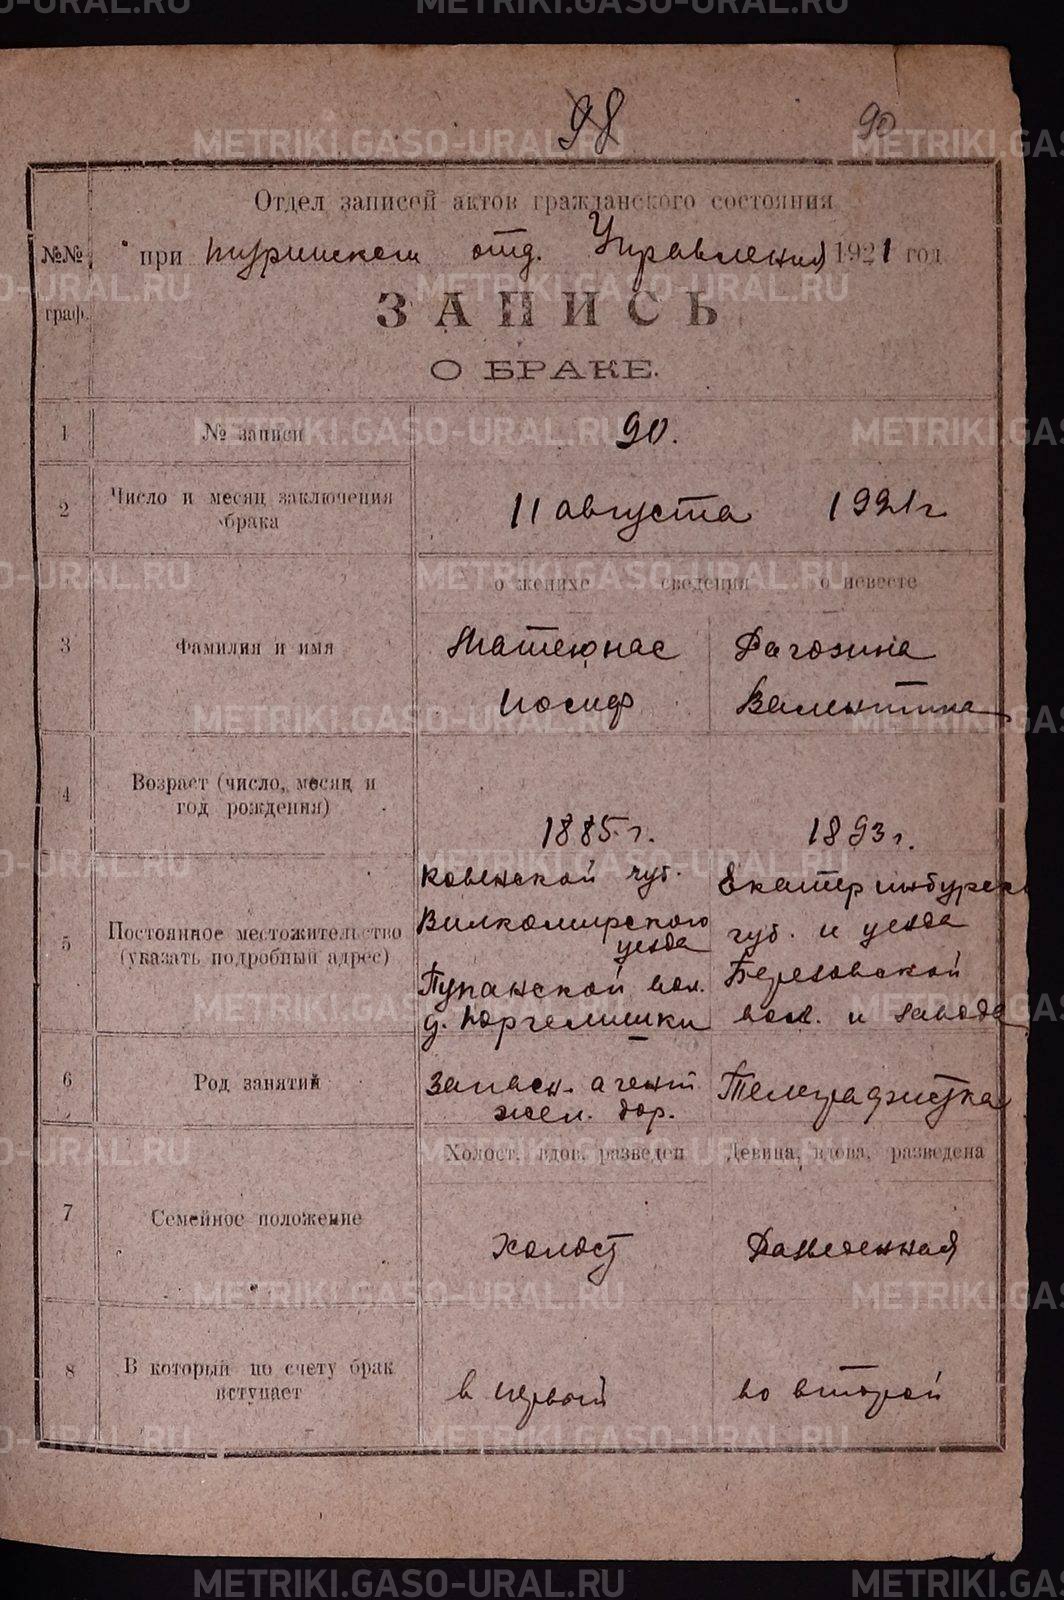 98
90
Отдел записей актов гражданского состояния
№№ граф.
при туринском отд. Управления 1921 год
ЗАПИСЬ
О БРАКЕ.
1
№ записи
90.
2
Число и месяц заключения
брака
11 августа 1921 г
о женихе сведения о невесте
3
Фамилия и имя
Матеюнас
Иосиф
Рагозина
Валентина
4
Возраст (число, месяц и
год рождения)
1885 г.
1893 г.
5
Постоянное местожительство
(указать подробный адрес)
Ковенской губ.
Вилкомирского
уезда
Купанской вол.
д. Юргелишки
Екатеринбургск
губ. и уезда
Березовской
вол. и завода
6
Род занятий
Запасн. агент
жел. дор.
Телеграфистка
7
Семейное положение
Холост, вдов, разведен
Девица, вдова, разведена
холост
Разведенная
8
В который по счету брак
вступает
в первый
во второй
METRIKI.GASO-URAL.RU